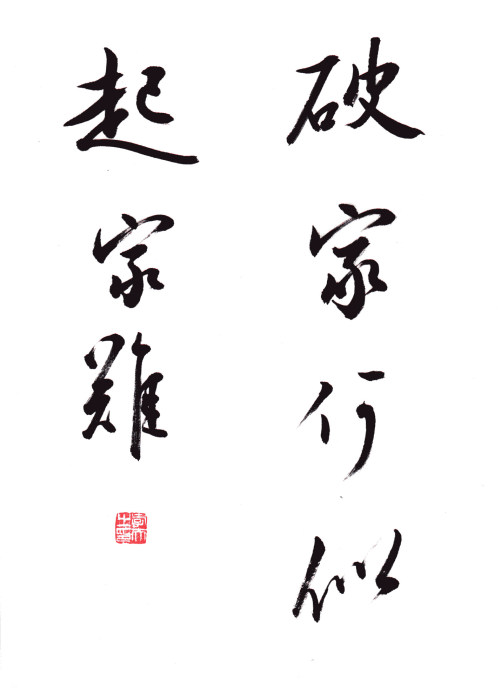 破家何似
起家難